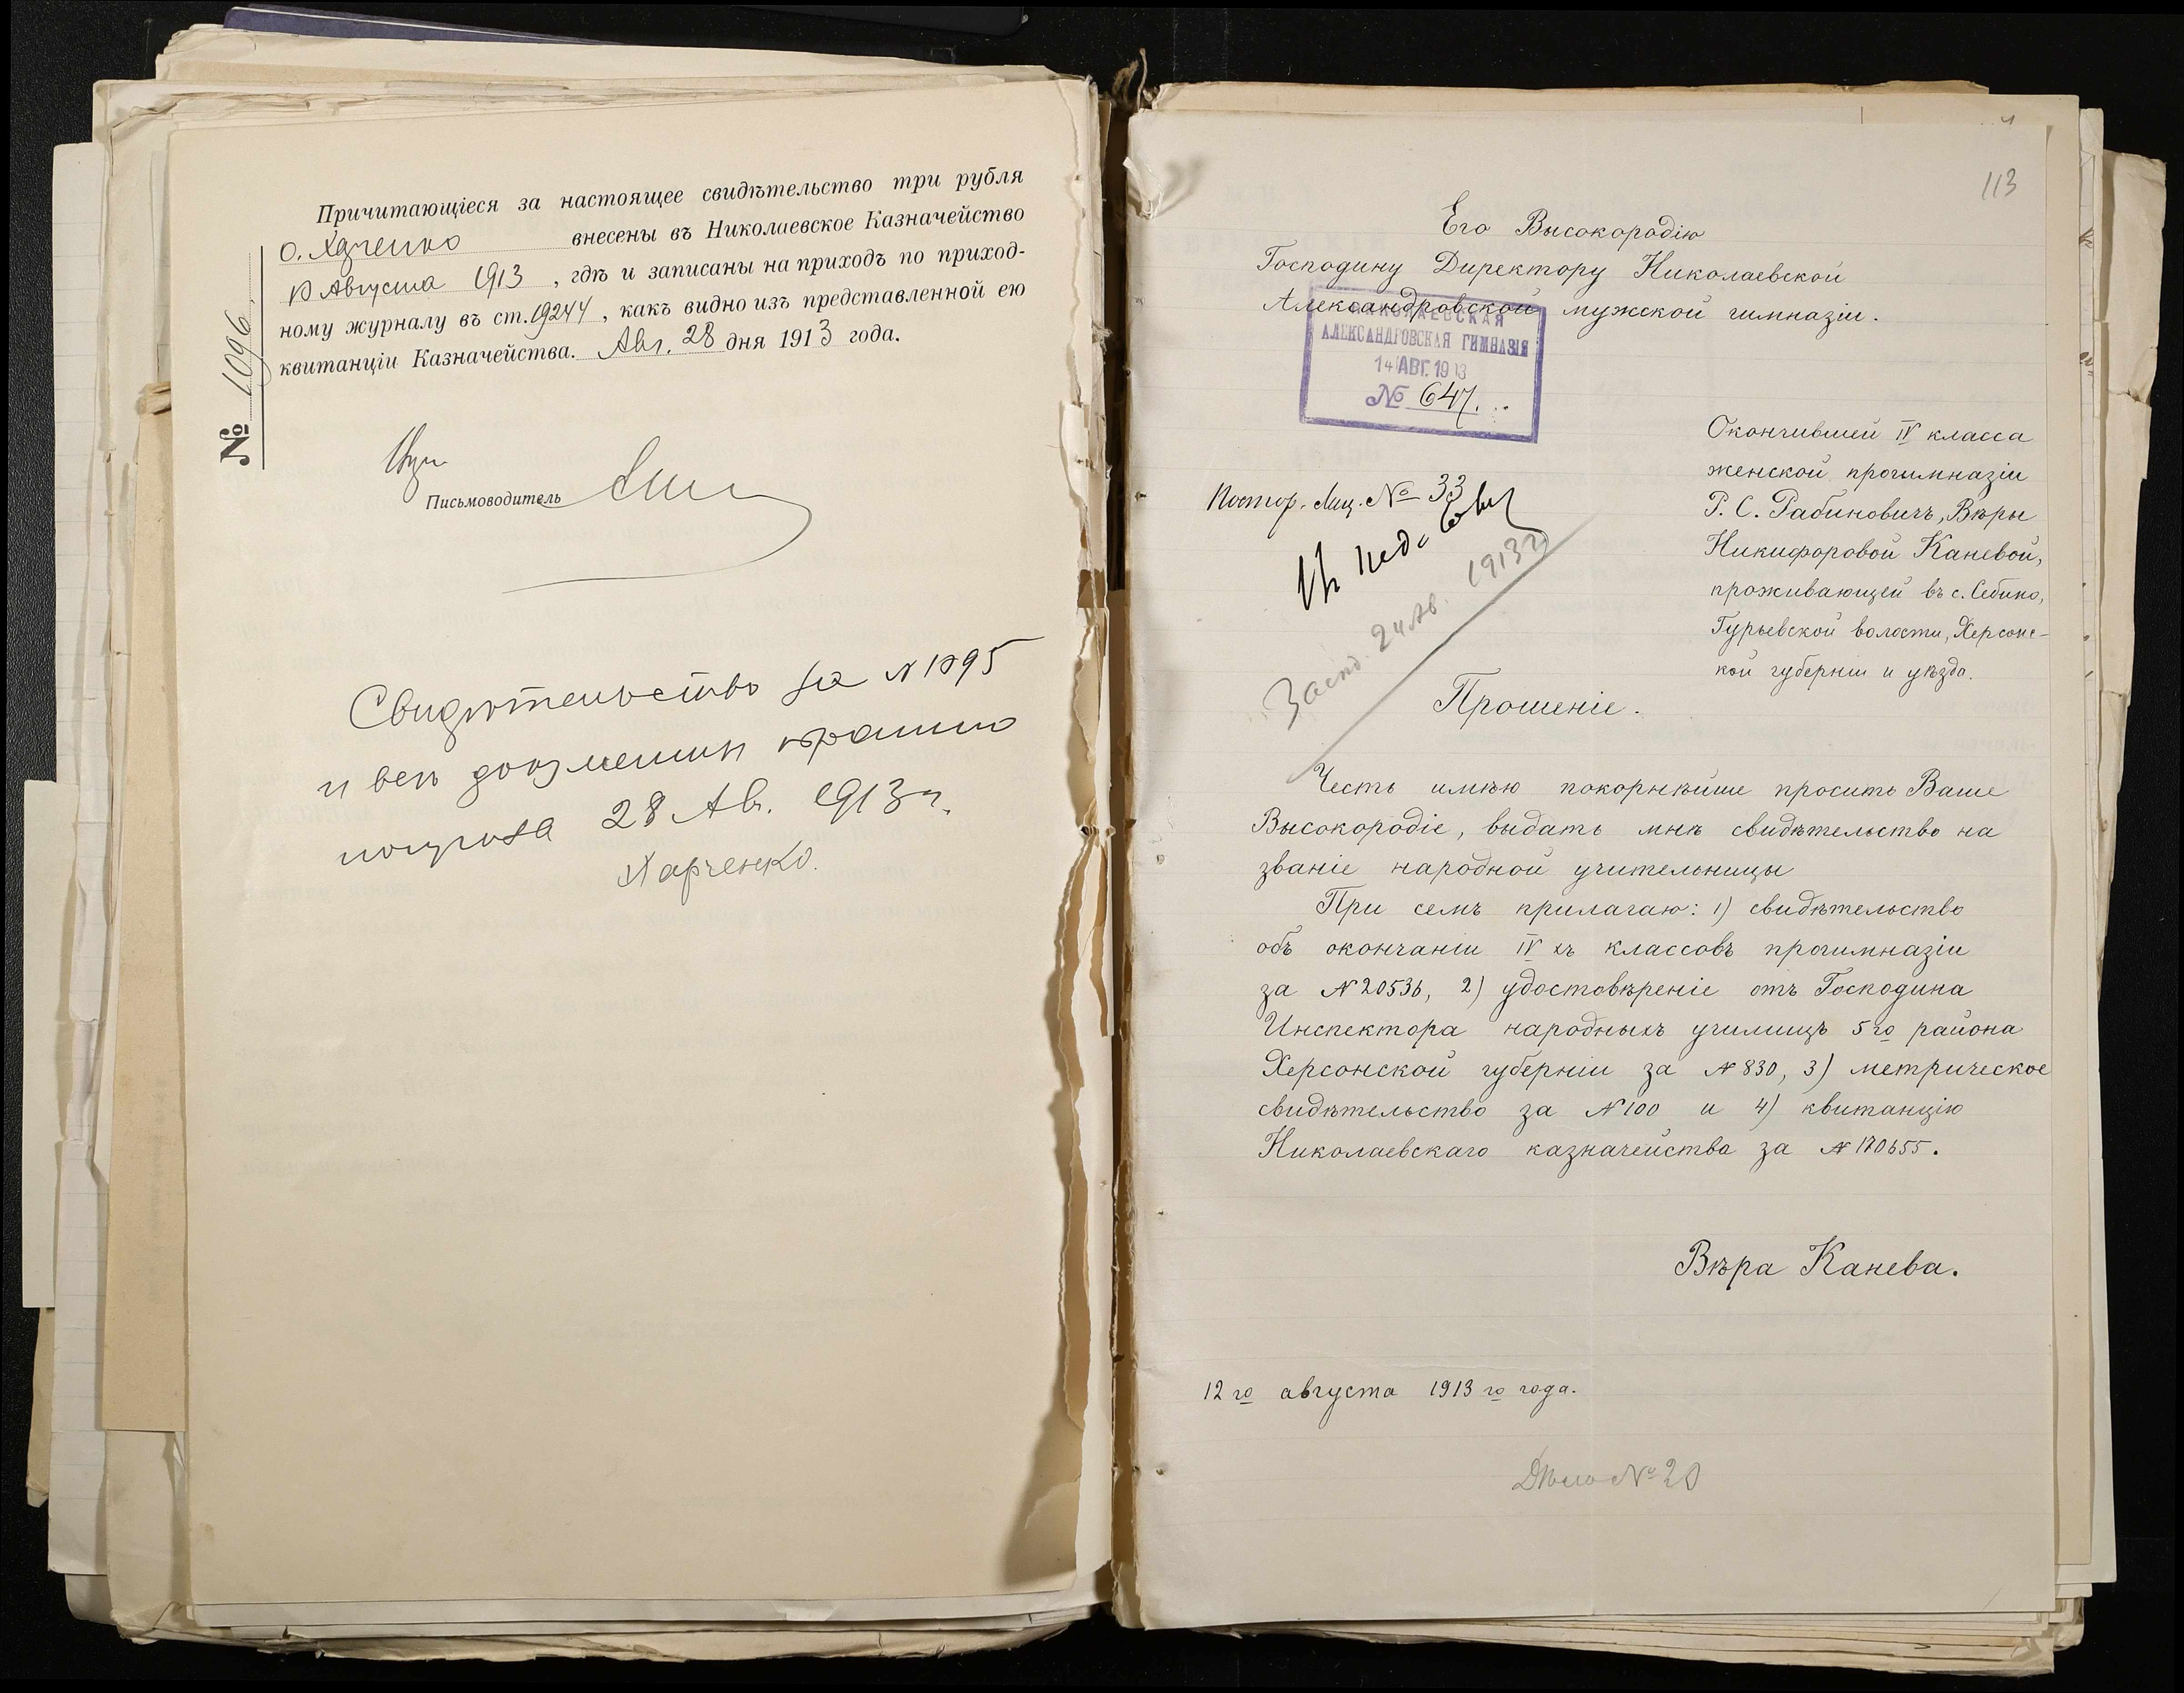 Причитающіеся за настоящее свидѣтельство три рубля
О. Харченко внесены въ Николаевское Казначейство
10 Августа 1913, гдѣ и записаны на приходъ по приход-
ному журналу въ ст. 19244, какъ видно изъ представленной ею
квитанціи Казначейства. Авг. 28 дня 1913 года.
№ 1096
Письмоводитель
Свидѣтельство за N 1095
и всѣ документы обратно
получила 28 Ав. 1913 г.
Харченко.
113
Его Высокородію
Господину Директору Николаевской
Александровской мужской гимназіи.
НИКОЛАЕВСКАЯ
АЛЕКСАНДРОВСКАЯ ГИМНАЗІЯ
14 АВГ. 1913
№ 647.
Окончившей IV класса
женской прогимназіи
Р. С. Рабиновичъ, Вѣры
Никифоровой Каневой,
проживающей въ с. Себино,
Гурьевской волости, Херсонс-
кой губерніи и уѣзда.
Постор. лиц. № 33
Въ пед. сов.
24 Ав. 1913 г.
Прошеніе.
Честь имѣю покорнѣйше просить Ваше
Высокородіе, выдать мнѣ свидѣтельство на
званіе народной учительницы
При семъ прилагаю: 1) свидѣтельство
объ окончаніи IV хъ классовъ прогимназіи
за N 20536, 2) удостовѣреніе отъ Господина
Инспектора народныхъ училищъ 5го района
Херсонской губерніи за N 830, 3) метрическое
свидѣтельство за N 100 и 4) квитанцію
Николаевскаго казначейства за N 170655.
Вѣра Канева.
12 го августа 1913 го года.
Дѣло № 20